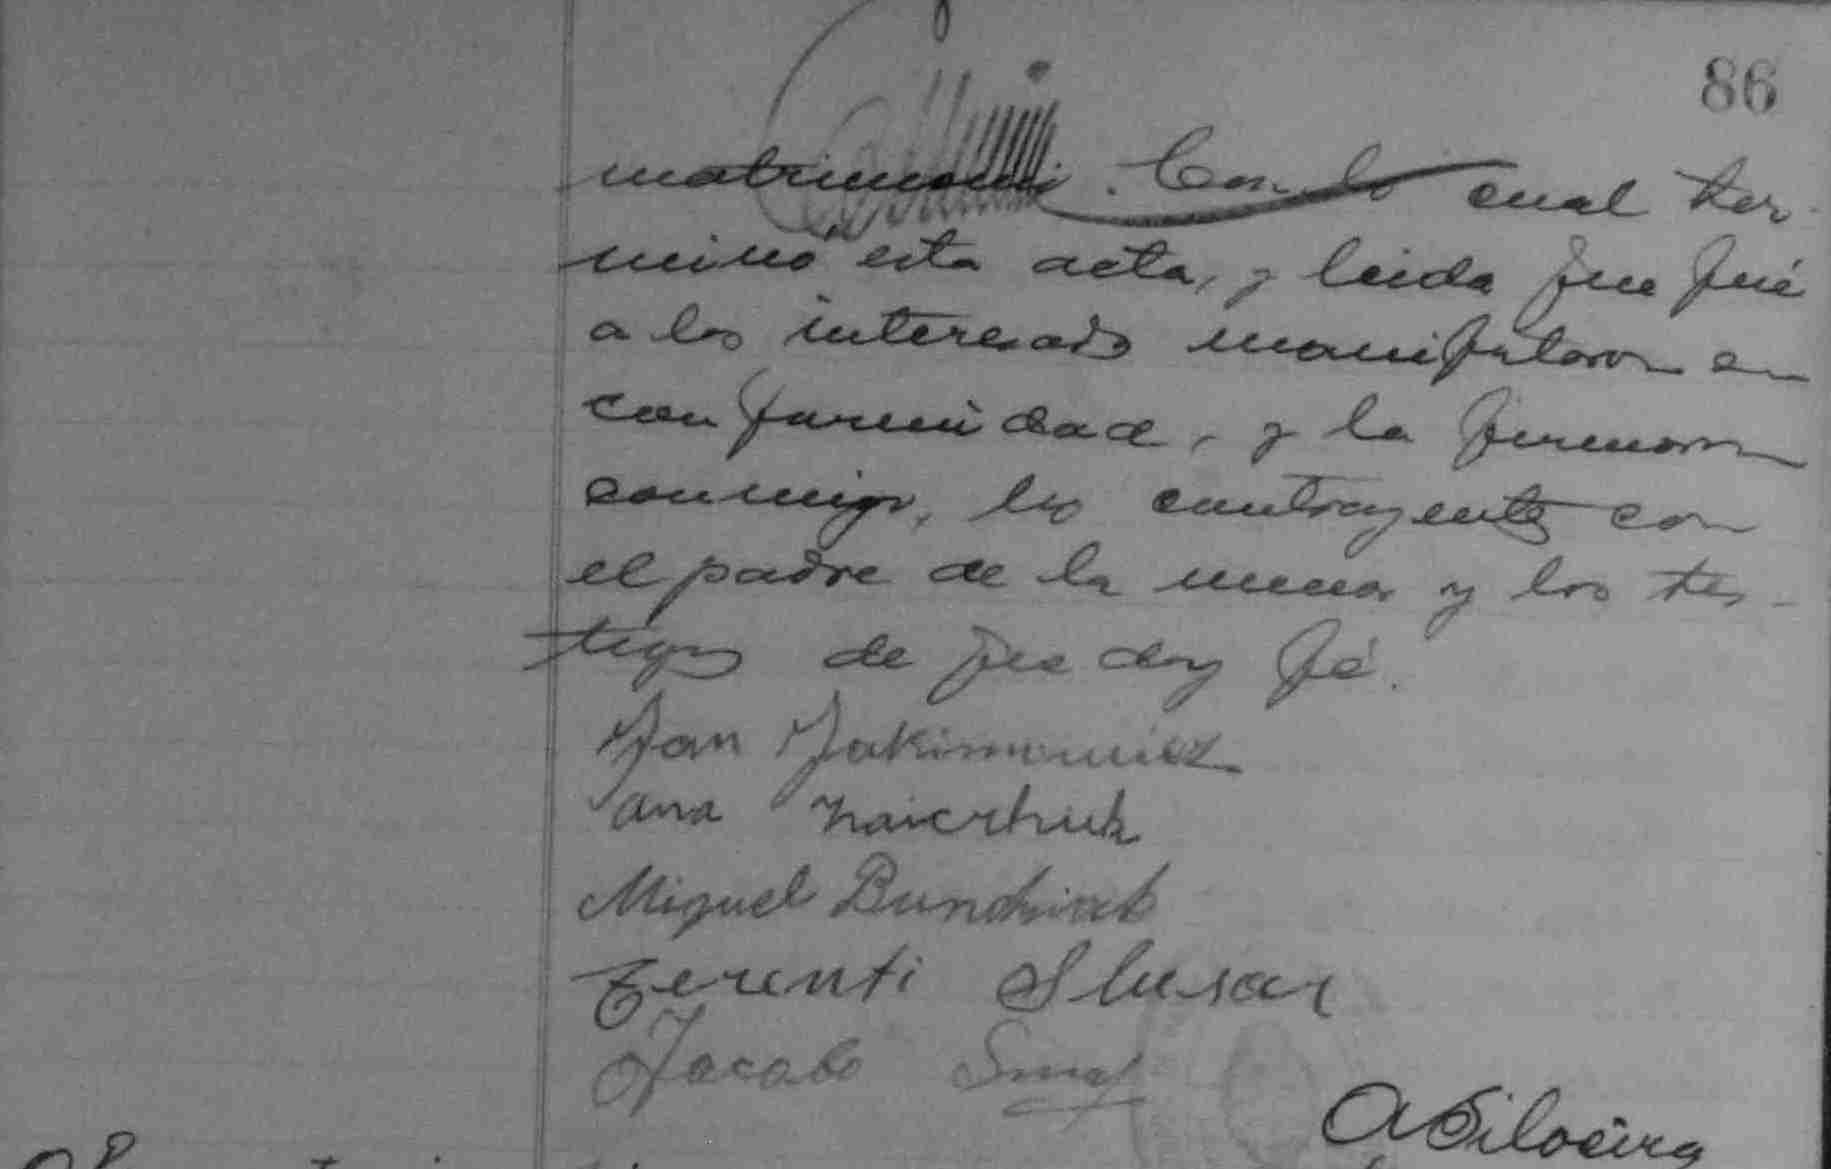 86
matrimonio. Con lo cual ter-
minó esta acta, y leida que fué
a los interesados manifestaron su
conformidad, y la firmaron
conmigo, los contrayentes con
el padre de la menor y los tes-
tigos de que doy fé.
Jan Jakimowicz
ana
Miguel
Terenti Slusar
Jacobo
A Silveira